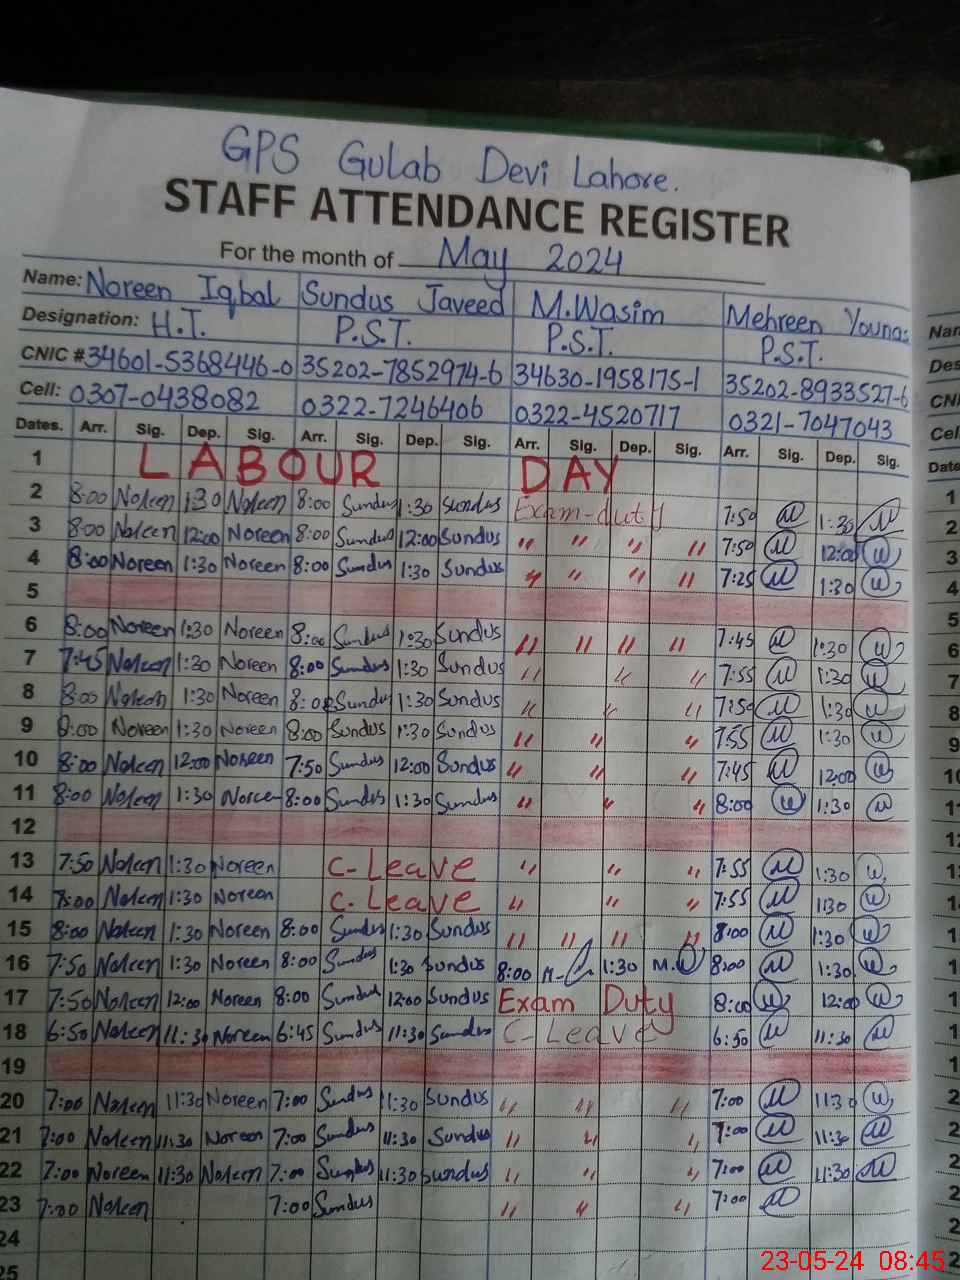 GPS Gulab Devi Lahore.
STAFF ATTENDANCE REGISTER
For the month of May 2024
Name: Noreen Iqbal Sundus Javeed M.Wasim Mehreen Younas
Designation: H.T. P.S.T. P.S.T. P.S.T.
CNIC #34601-5368446-0 35202-7852974-6 34630-1958175-1 35202-8933527-6
Cell: 0307-0438082 0322-7246406 0322-4520717 0321-7047043
Dates. Arr. Sig. Dep. Sig. Arr. Sig. Dep. Sig. Arr. Sig. Dep. Sig. Arr. Sig. Dep. Sig.
1 LABOUR DAY
2 8:00 Noreen 1:30 Noreen 8:00 Sundus 1:30 Sundus Exam-duty 7:50 1:30
3 8:00 Noreen 12:00 Noreen 8:00 Sundus 12:00 Sundus " " " " 7:50 12:00
4 8:00 Noreen 1:30 Noreen 8:00 Sundus 1:30 Sundus " " " " 7:25 1:30
5
6 8:00 Noreen 1:30 Noreen 8:00 Sundus 1:30 Sundus " " " " 7:45 1:30
7 7:45 Noreen 1:30 Noreen 8:00 Sundus 1:30 Sundus " " " 7:55 1:30
8 8:00 Noreen 1:30 Noreen 8:00 Sundus 1:30 Sundus " " " 7:50 1:30
9 8:00 Noreen 1:30 Noreen 8:00 Sundus 1:30 Sundus " " " 7:55 1:30
10 8:00 Noreen 12:00 Noreen 7:50 Sundus 12:00 Sundus " " " 7:45 12:00
11 8:00 Noreen 1:30 Noreen 8:00 Sundus 1:30 Sundus " " " 8:00 1:30
12
13 7:50 Noreen 1:30 Noreen C-Leave " " " 7:55 1:30
14 Noreen 1:30 Noreen C.Leave " " " 7:55 1:30
15 8:00 Noreen 1:30 Noreen 8:00 Sundus 1:30 Sundus " " " " 8:00 1:30
16 7:50 Noreen 1:30 Noreen 8:00 Sundus 1:30 Sundus 8:00 1:30 8:00 1:30
17 7:50 Noreen 12:00 Noreen 8:00 Sundus 12:00 Sundus Exam Duty 8:00 12:00
18 6:50 Noreen 11:30 Noreen 6:45 Sundus 11:30 Sundus C-Leave 6:50 11:30
19
20 7:00 Noreen 11:30 Noreen 7:00 Sundus 11:30 Sundus " " " 7:00 11:30
21 7:00 Noreen 11:30 Noreen 7:00 Sundus 11:30 Sundus " " " 7:00 11:30
22 7:00 Noreen 11:30 Noreen 7:00 Sundus 11:30 Sundus " " " 7:00 11:30
23 7:00 Noreen 7:00 Sundus " " " 7:00
24
25
23-05-24 08:45